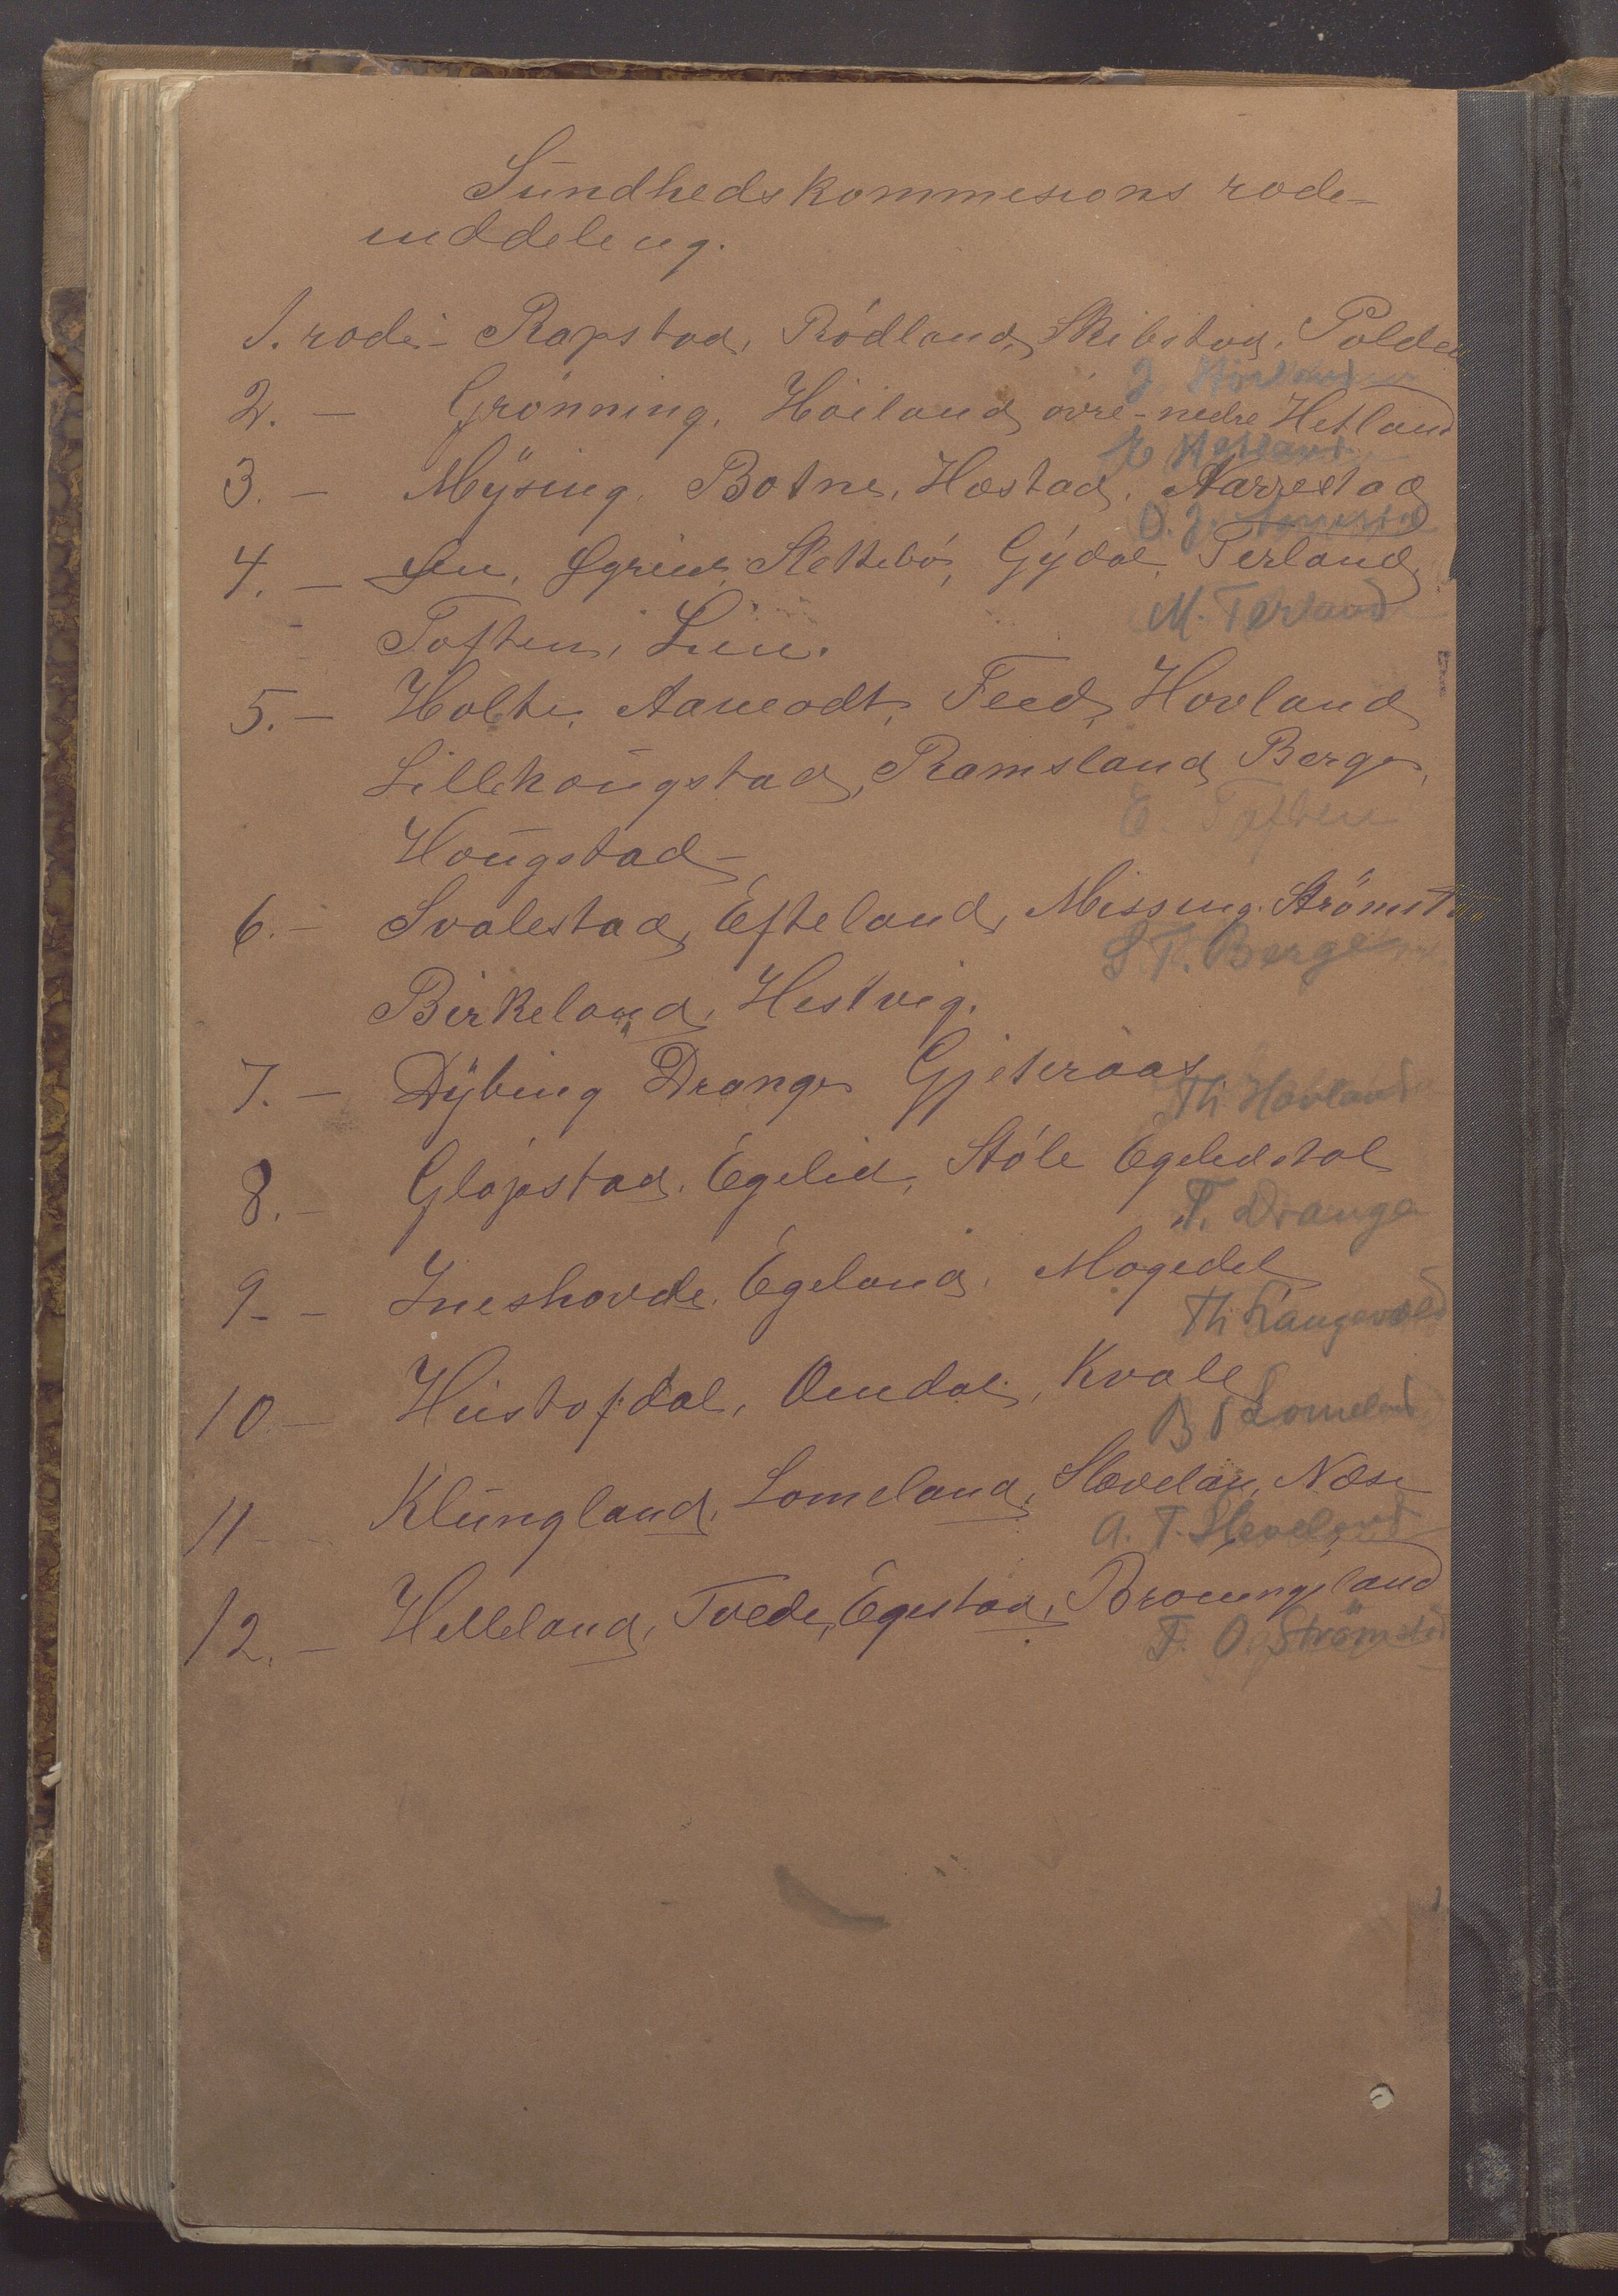 Sundhedskommesions rode-
inddeleng.
1. rode - Rapstad, Rødland, Skibstad, Polden
J Höiland
2. - Grönning, Höiland, övre-nedre Hetland
E Hetland
3. - Mysing, Botne, Hæstad, Aarrestad
O. J. Aarrestad
4. - Lien, Øgreid, Slettebö, Gydal, Terland,
M. Terland
Toften, Lien.
5. - Holte, Aamodt, Feed, Hovland
Lillehougstad, Ramsland, Berge,
E. Toften
Hougstad -
6. - Svalestad, Efteland, Missing. Strömstad
S T. Berge
Birkeland, Hestvig.
7. - Dybing Drange Gjeteraas
Th Havland
8. - Glopstad, Egelid, Stöle Egelidstøl
T. Drange
9 - - Ineshovde, Egeland, Mogedel
Th Langevold
10 - Hustofdal, Omdal, Kvale
B T Lomeland
11 - Klungland, Lomeland, Slevelan, Næse
A. T. Sleveland
12. - Helleland, Tvede, Egestad, Broungeland
T. O. Strömstad